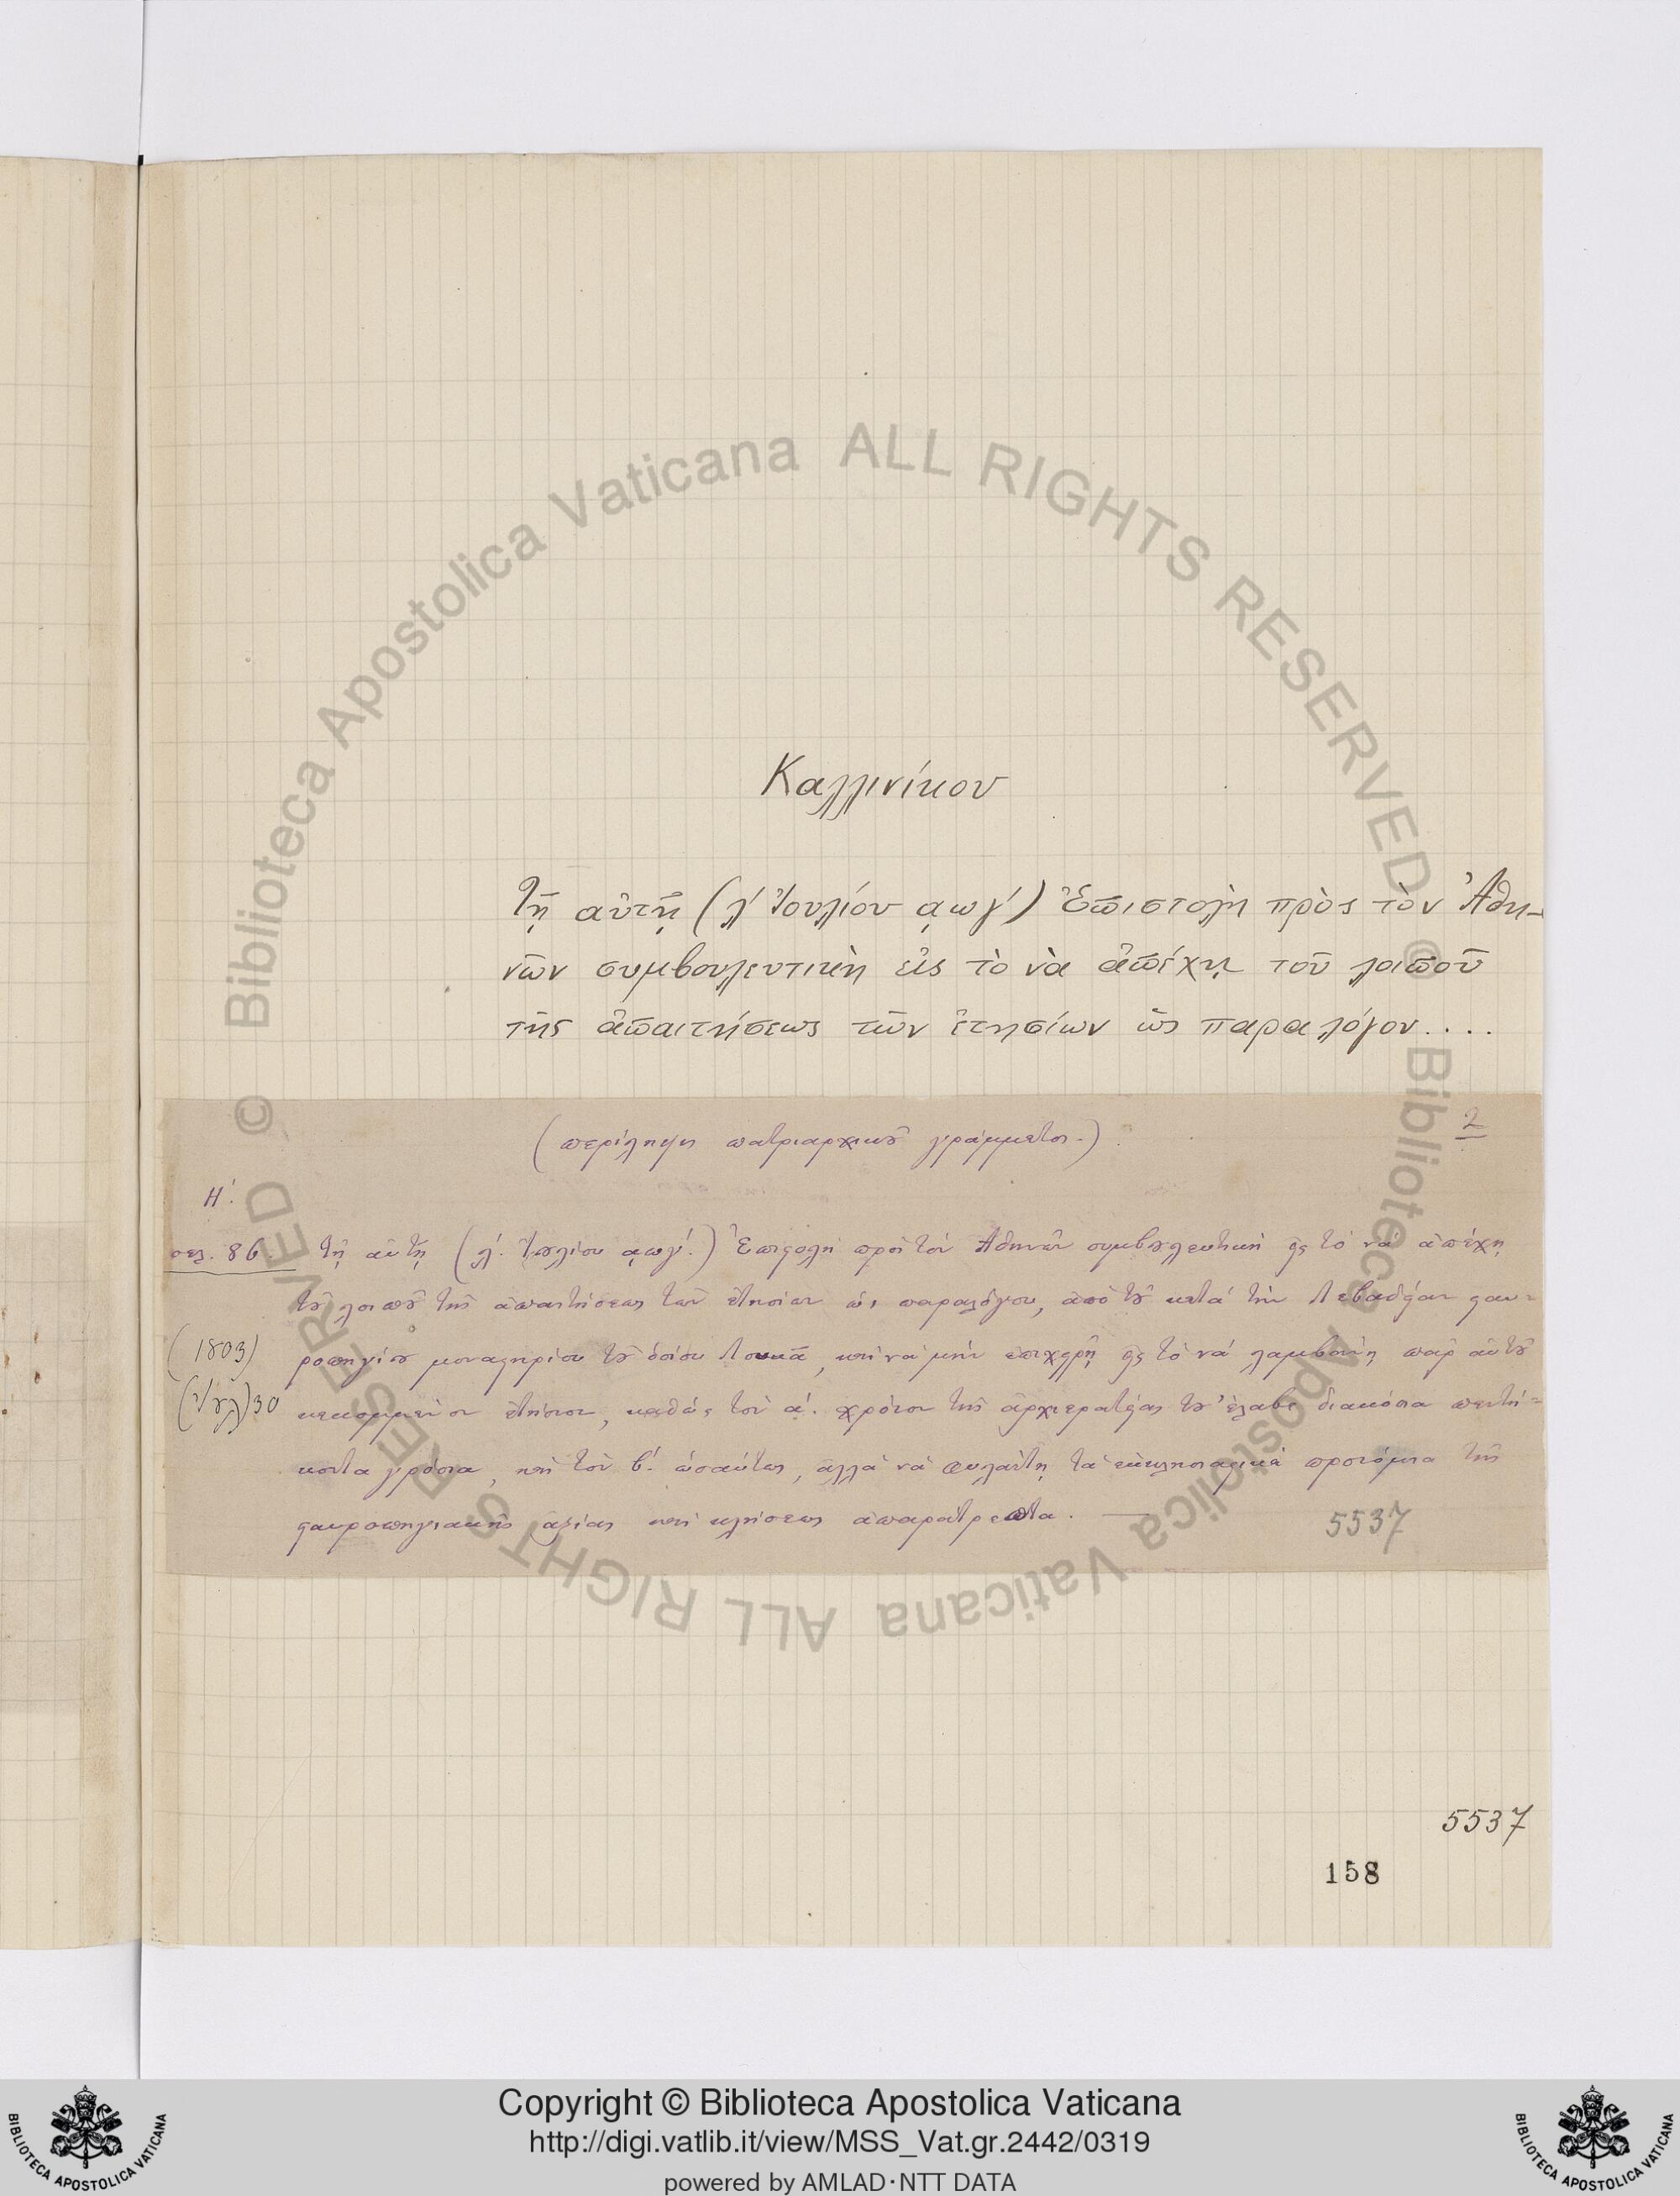 Καλλινίκου
Τῇ αὐτῇ (λ´ Ἰουλίου αωγ´) Ἐπιστολὴ πρὸς τὸν Ἀθη-
νῶν συμβουλευτικὴ εἰς τὸ νὰ ἀπέχῃ τοῦ λοιποῦ
τῆς ἀπαιτήσεως τῶν ἐτησίων ὡς παραλόγου....
(περίληψις πατριαρχικοῦ γράμματος.)
2
Η´.
σελ. 86. τῇ αὐτῇ (λ´. Ἰουλίου αωγ´.) Ἐπιστολὴ πρὸς τὸν Ἀθηνῶν συμβουλευτικὴ εἰς τὸ νὰ ἀπέχῃ
τοῦ λοιποῦ τῆς ἀπαιτήσεως τῶν ἐτησίων ὡς παραλόγου, ἀπὸ τοῦ κατὰ τὴν Λεβαδείαν σταυ=
(1803) ροπηγίου μοναστηρίου τοῦ ὁσίου Λουκᾶ, καὶ νὰ μὴν ἐπιχειρῇ εἰς τὸ νὰ λαμβάνῃ παρ᾽ αὐτοῦ
(Ἰουλ) 30 κεκομμένον ἐτήσιον, καθὼς τὸν α´. χρόνον τῆς ἀρχιερατείας του ἔλαβε διακόσια πεντή=
κοντα γρόσια, καὶ τὸν β´. ὡσαύτως, ἀλλὰ νὰ φυλάττῃ τὰ ἐκκλησιαστικὰ προνόμια τῆς
σταυροπηγιακῆς ἀξίας καὶ κλήσεως ἀπαράτρεπτα. —
5537
5537
158
Copyright © Biblioteca Apostolica Vaticana
http://digi.vatlib.it/view/MSS_Vat.gr.2442/0319
powered by AMLAD·NTT DATA
© Biblioteca Apostolica Vaticana ALL RIGHTS RESERVED
© Biblioteca Apostolica Vaticana ALL RIGHTS RESERVED
BIBLIOTECA APOSTOLICA VATICANA
BIBLIOTECA APOSTOLICA VATICANA